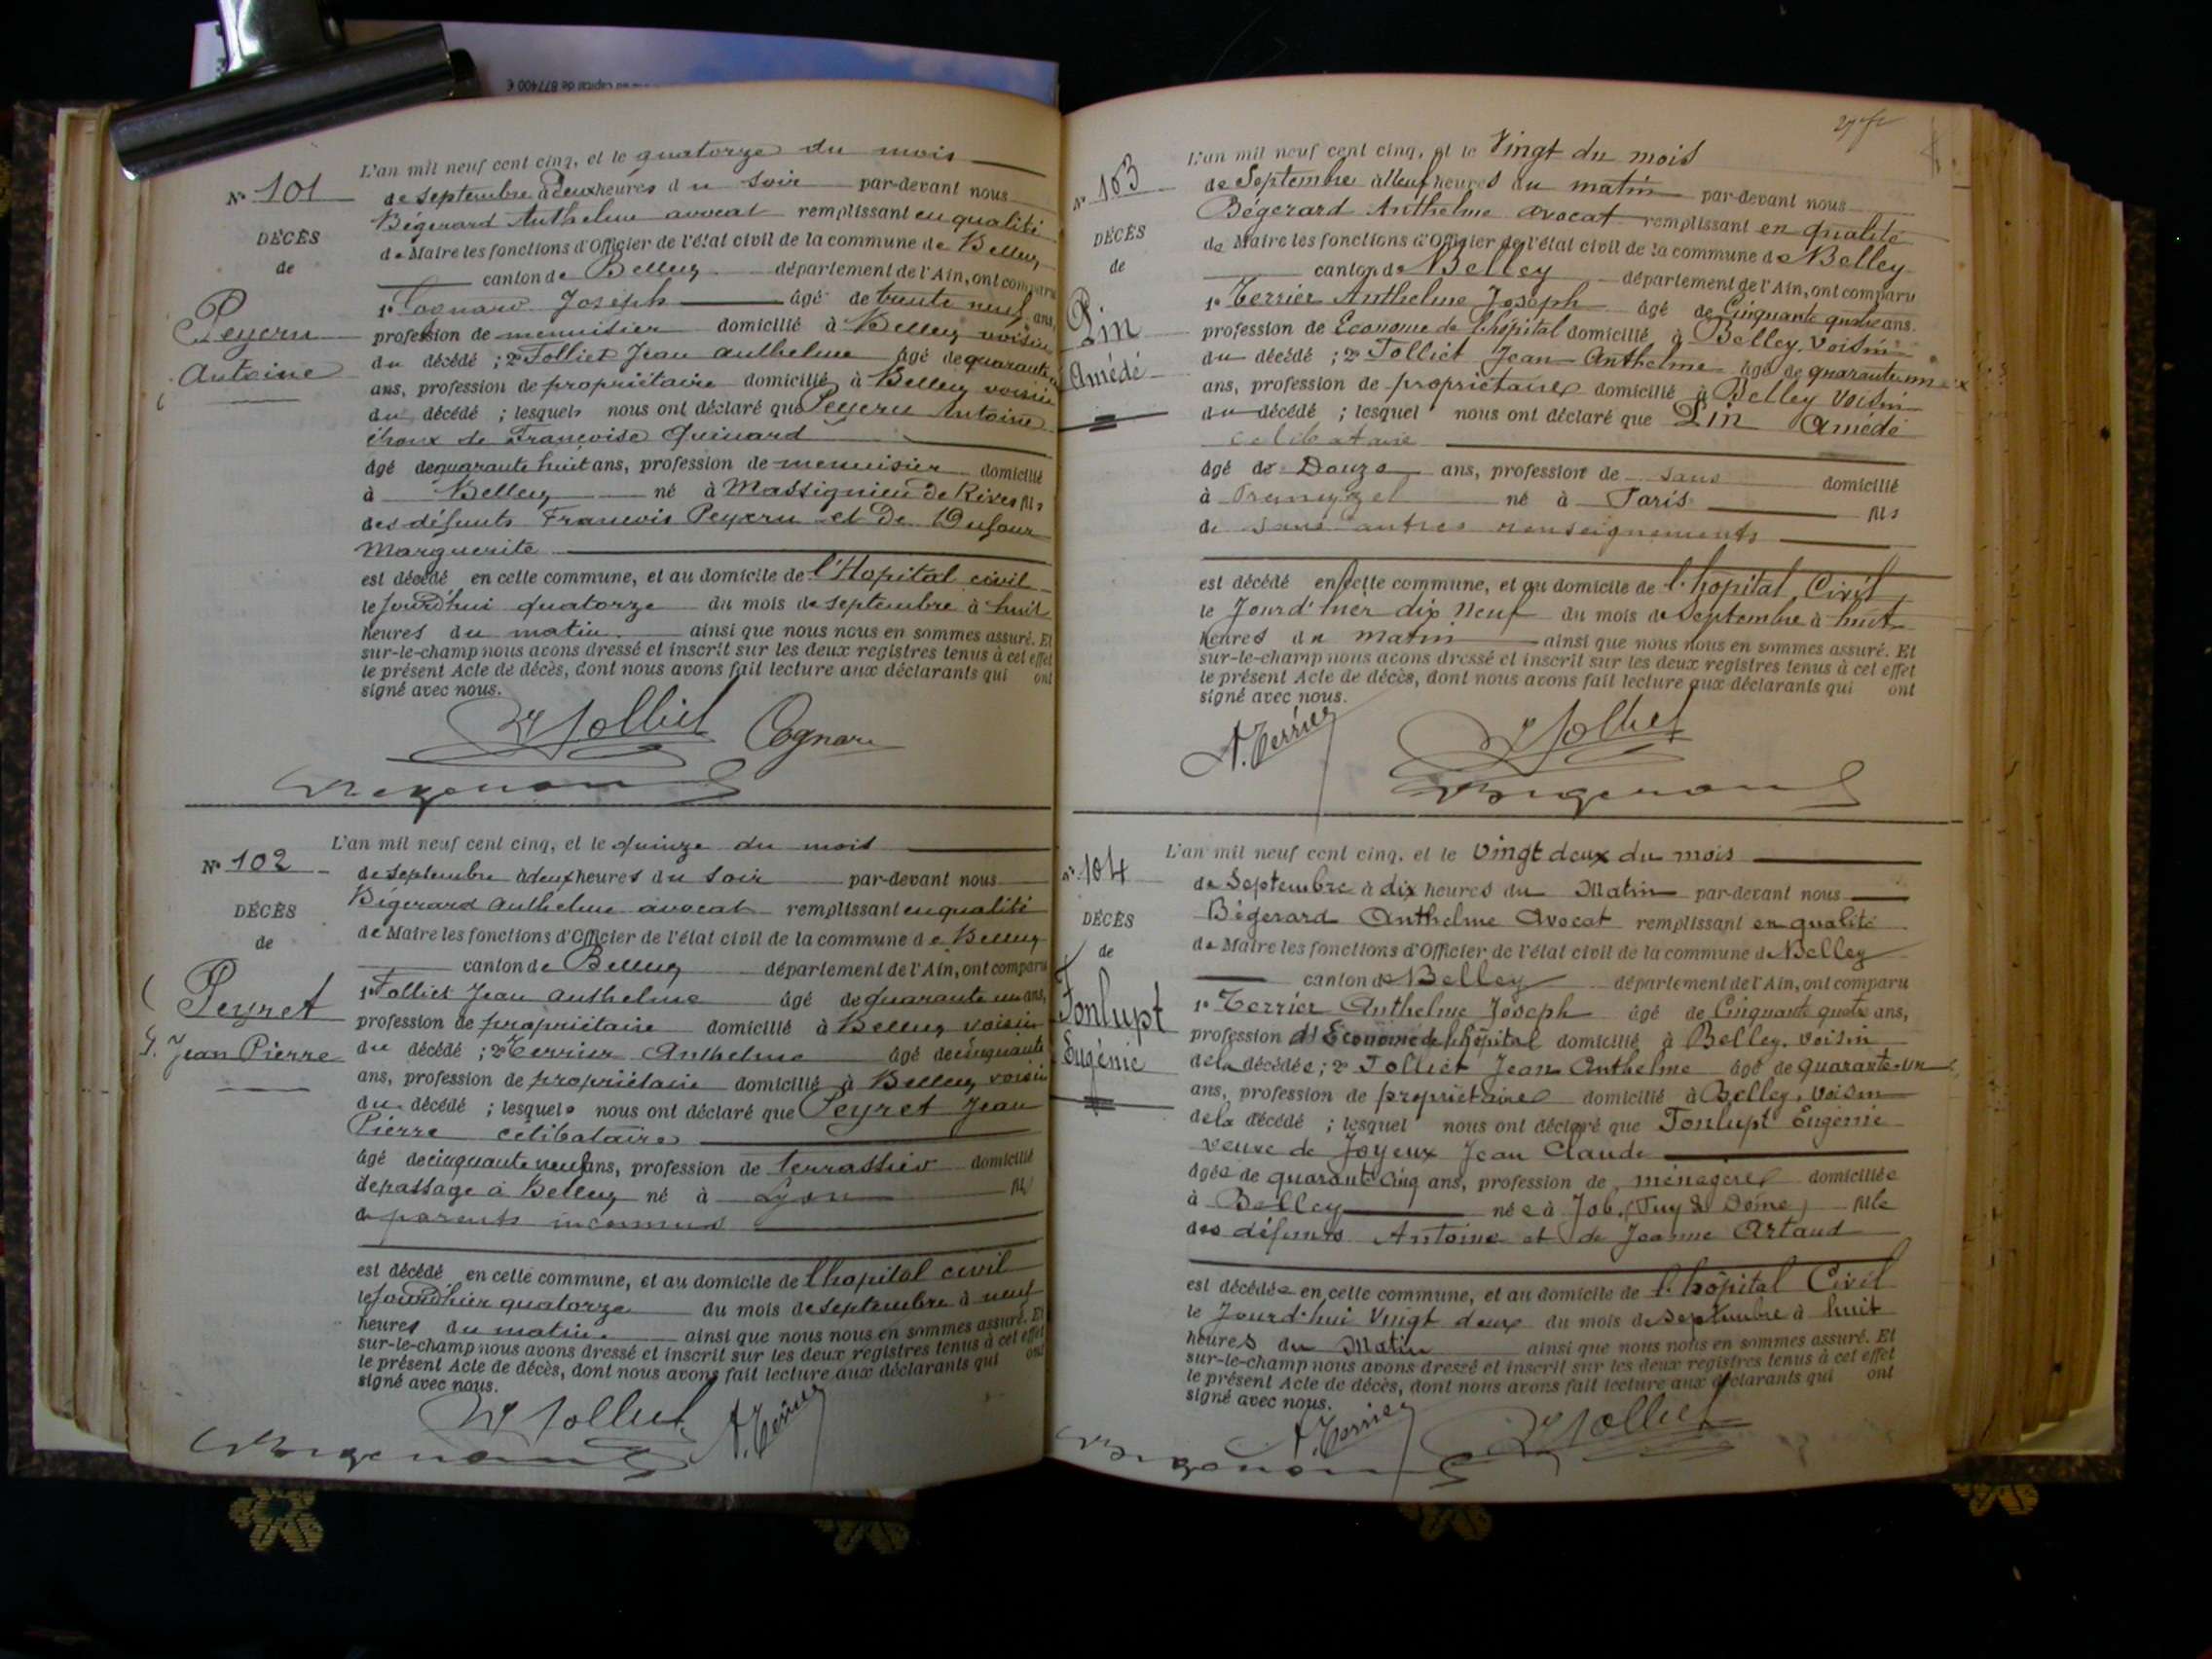 L'an mil neuf cent cinq, et le quatorze du mois
N° 101
de septembre à deux heures du soir par-devant nous
Bégerard Anthelme avocat remplissant en qualité
DÉCÈS
de Maire les fonctions d'Officier de l'état civil de la commune de Belley
de
canton de Belley département de l'Ain, ont comparu
1° Cognard Joseph âgé de trente neuf ans,
Peyeru
profession de menuisier domicilié à Belley voisin
du décédé ; 2° Tolliet Jean Anthelme âgé de quarante
Antoine
ans, profession de propriétaire domicilié à Belley voisin
du décédé ; lesquels nous ont déclaré que Peyeru Antoine
époux de Françoise Guinard
âgé de quarante huit ans, profession de menuisier domicilié
à Belley né à Massignieu de Rives fils
des défunts François Peyeru et de Dufour
Marguerite
est décédé en cette commune, et au domicile de l'Hopital civil
le jourd'hui quatorze du mois de septembre à huit
heures du matin ainsi que nous nous en sommes assuré. Et
sur-le-champ nous avons dressé et inscrit sur les deux registres tenus à cet effet
le présent Acte de décès, dont nous avons fait lecture aux déclarants qui ont
signé avec nous.
Tolliet Cognard
Bégerard
L'an mil neuf cent cinq, et le quinze du mois
N° 102
de septembre à deux heures du soir par-devant nous
Bégerard Anthelme avocat remplissant en qualité
DÉCÈS
de Maire les fonctions d'Officier de l'état civil de la commune de Belley
de
canton de Belley département de l'Ain, ont comparu
1° Tolliet Jean Anthelme âgé de quarante un ans,
Peyret
profession de propriétaire domicilié à Belley voisin
Jean Pierre
du décédé ; 2° Terrier Anthelme âgé de cinquante
ans, profession de propriétaire domicilié à Belley voisin
du décédé ; lesquels nous ont déclaré que Peyret Jean
Pierre célibataire
âgé de cinquante neuf ans, profession de terrassier domicilié
de passage à Belley né à Lyon fils
de parents inconnus
est décédé en cette commune, et au domicile de l'hopital civil
le jourd'hier quatorze du mois de septembre à neuf
heures du matin ainsi que nous nous en sommes assuré. Et
sur-le-champ nous avons dressé et inscrit sur les deux registres tenus à cet effet
le présent Acte de décès, dont nous avons fait lecture aux déclarants qui ont
signé avec nous.
Tolliet A. Terrier
Bégerard
L'an mil neuf cent cinq, et le Vingt du mois
N° 103
de Septembre à Neuf heures du matin par-devant nous
Bégerard Anthelme avocat remplissant en qualité
DÉCÈS
de Maire les fonctions d'Officier de l'état civil de la commune de Belley
de
canton de Belley département de l'Ain, ont comparu
1° Terrier Anthelme Joseph âgé de Cinquante quatre ans.
Lin
profession de Econome de l'hôpital domicilié à Belley, Voisin
du décédé ; 2° Tolliet Jean Anthelme âgé de quarante un
Amédé
ans, profession de propriétaire domicilié à Belley Voisin
du décédé ; lesquel nous ont déclaré que Lin Amédé
celibataire
âgé de Douze ans, profession de sans domicilié
à né à Paris fils
de sans autres renseignements
est décédé en cette commune, et au domicile de l'hôpital Civil
le Jourd'hier dix neuf du mois de Septembre à huit
heures du matin ainsi que nous nous en sommes assuré. Et
sur-le-champ nous avons dressé et inscrit sur les deux registres tenus à cet effet
le présent Acte de décès, dont nous avons fait lecture aux déclarants qui ont
signé avec nous.
A. Terrier Tolliet
Bégerard
L'an mil neuf cent cinq, et le Vingt deux du mois
N° 104
de Septembre à dix heures du Matin par-devant nous
Bégerard Anthelme Avocat remplissant en qualité
DÉCÈS
de Maire les fonctions d'Officier de l'état civil de la commune de Belley
de
canton de Belley département de l'Ain, ont comparu
1° Terrier Anthelme Joseph âgé de Cinquante quatre ans,
Fonlupt
profession d'Econome de l'hôpital domicilié à Belley, voisin
Eugénie
de la décédée ; 2° Tolliet Jean Anthelme âgé de quarante-un
ans, profession de propriétaire domicilié à Belley, Voisin
de la décédé ; lesquel nous ont déclaré que Fonlupt Eugénie
veuve de Joyeux Jean Claude
âgée de quarante cinq ans, profession de ménagère domiciliée
à Belley née à Job, (Puy de Dôme) fille
des défunts Antoine et de Jeanne Artaud
est décédée en cette commune, et au domicile de l'hôpital Civil
le Jourd'hui Vingt deux du mois de septembre à huit
heures du Matin ainsi que nous nous en sommes assuré. Et
sur-le-champ nous avons dressé et inscrit sur les deux registres tenus à cet effet
le présent Acte de décès, dont nous avons fait lecture aux déclarants qui ont
signé avec nous.
A. Terrier Tolliet
Bégerard